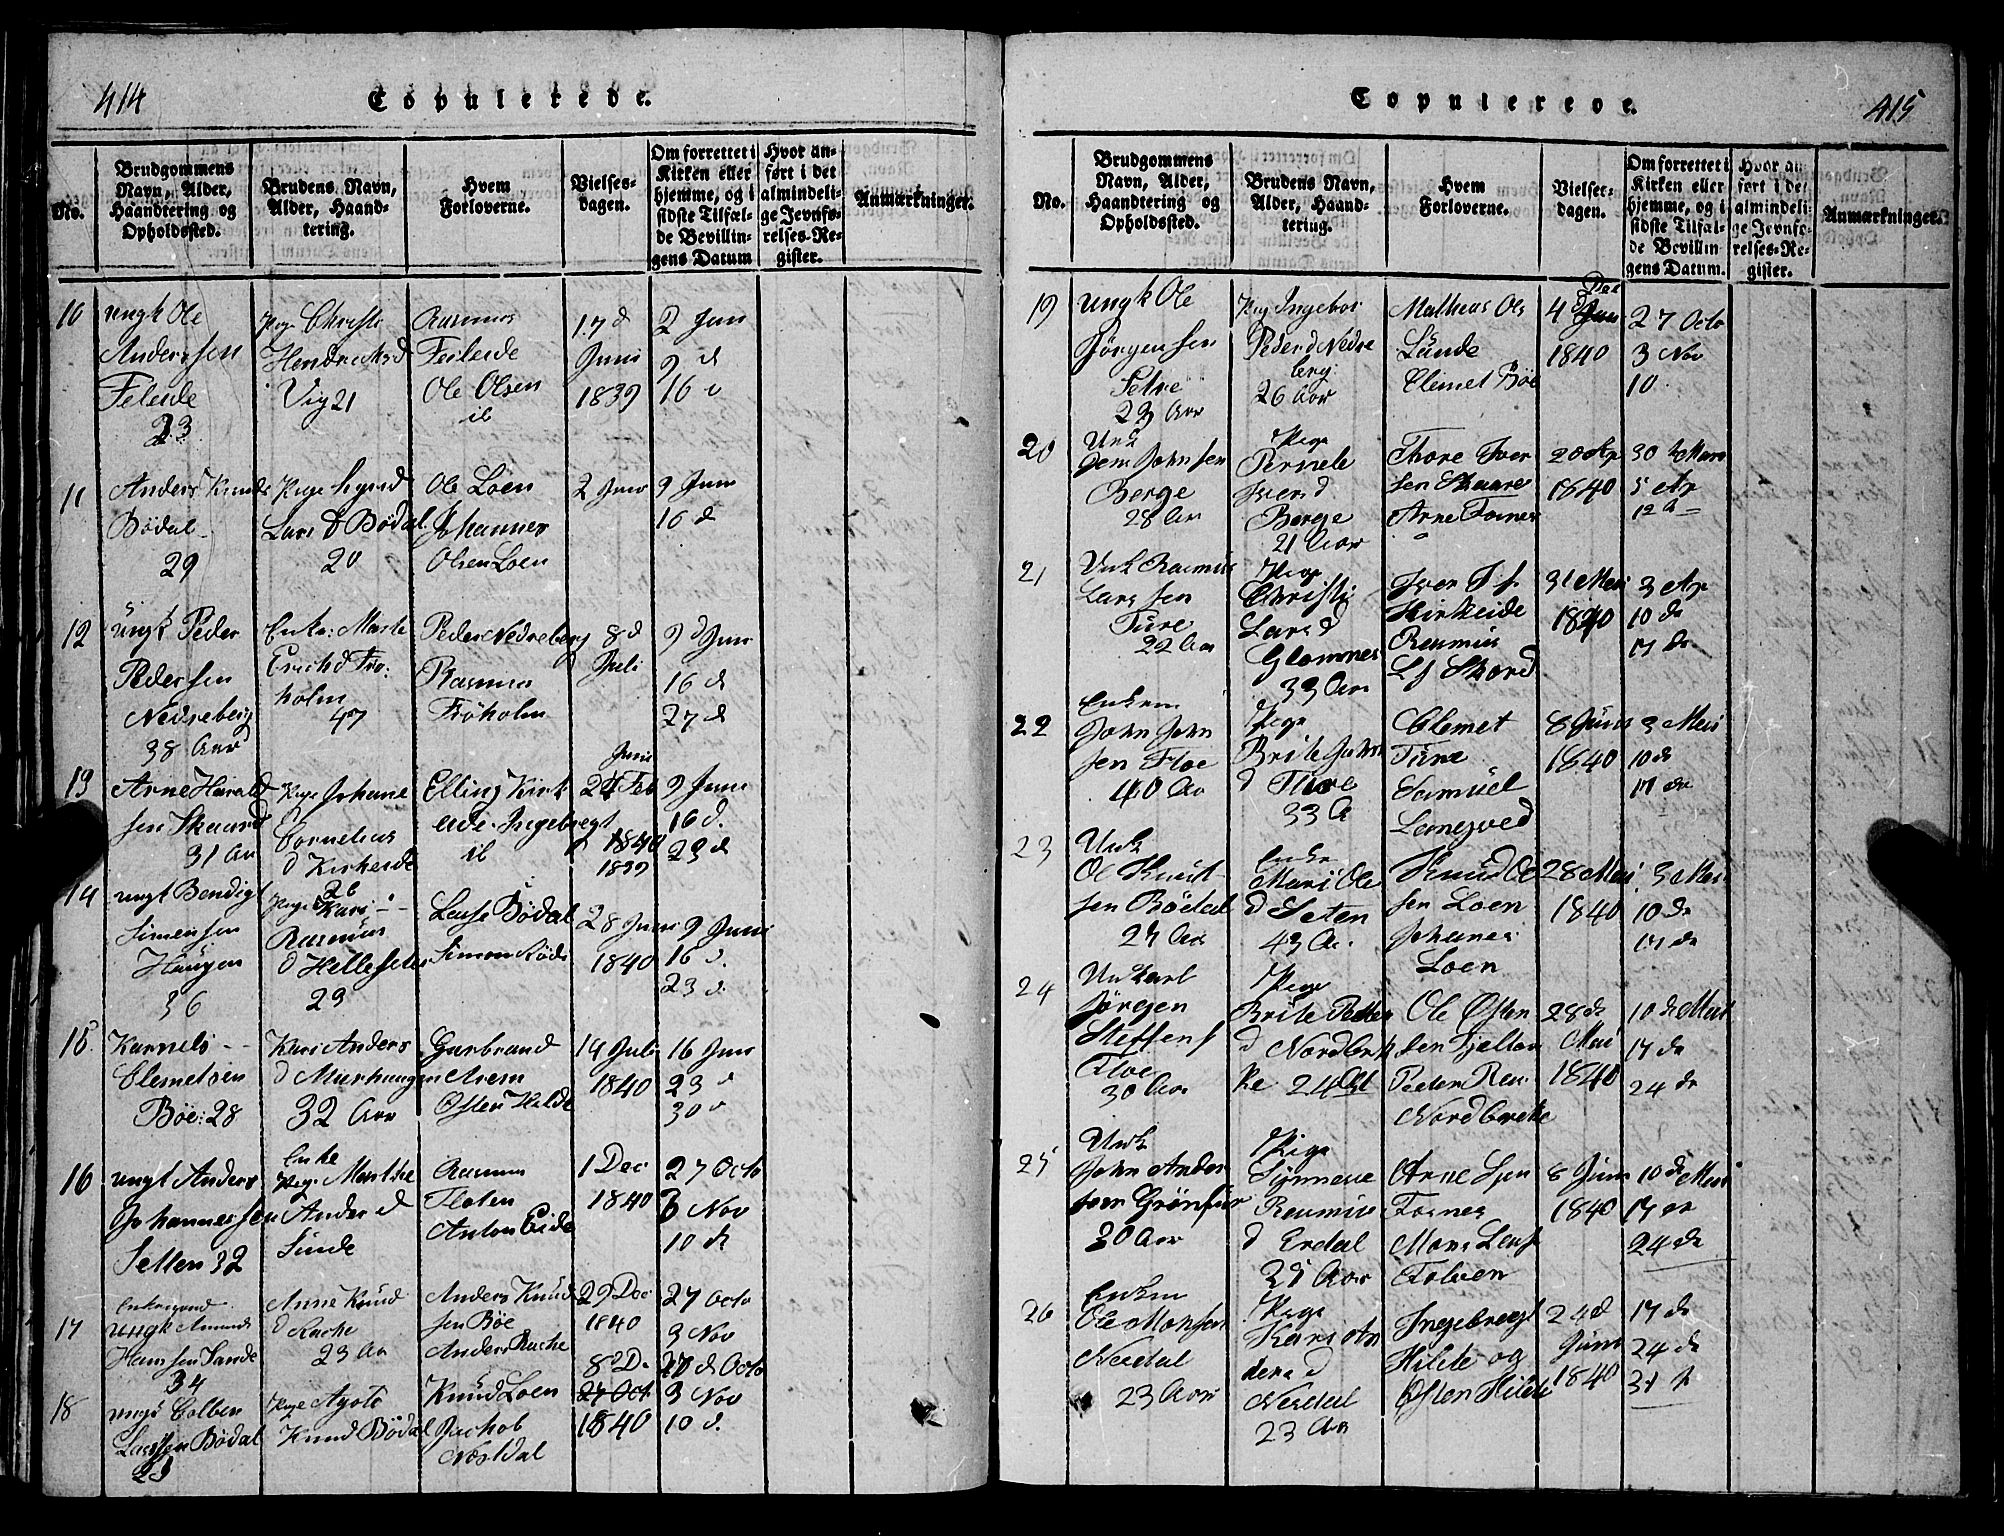 414
Copulerede.
No.
Brudgommens
Navn, Alder,
Haandtering og
Opholdssted.
Brudens Navn,
Alder, Haand-
tering.
Hvem
Forloverne.
Vielses-
dagen.
Om forrettet i
Kirken eller
hjemme, og i
sidste Tilfæl-
de Bevillin-
gens Datum
Hvor an-
ført i det
almindeli-
ge Jevnfø-
relses-Re-
gister.
Anmærkninger.
10
ungk Ole
Anderssen
Feleide
23
Pige Christi
Hendrichsd
Vig 21
Rasmus
Feileide
Ole Olsen
17 d
Juni
1839
2 Juni
9 d
16 d
11
Anders Knuds
Bödal
29
Lars D Bödal
20
Ole Loen
Johannes
Olsen Loen
2 Juni
9 Juni
16 d
12
ungk Peder
Pedersen
Nedreberg
38 Aar
Enke: Marte
Erichsd Frö-
holm
47
Peder Nedreberg
Rasmus
Fröholm
8 d
Juli
9 d Juni
16 d
27 d
13
Arne Harald
sen Skaard
31 Aar
Pige Johane
Cornelius
d Kirkeide
26
Elling Kirk
eide Ingebregt
Juni
24 Feb
1840
1839
9 Juni
16 d.
23 d
14
ungk Bendigt
Simensen
Haugen
36
Pige Kari
Rasmus
d Hellesetes
29
Lasse Bödal
Simon Röd
28 Juni
1840
9 Juni
16 d.
23 d.
15.
Karnels
Clemetsen
Böe: 28
Kari Anders
d Murhaugen
32 Aar
Garbrand
Osten Hilde
14 Juli
1840
16 Juni
23 d
30 d
16
ungk Anders
Johannessen
Setten 32
Enke
Pige Marthe
Anders d
Sunde
Rasmus
Floten
Anton Eide
1 Dec
1840
27 Octo
3 Nov
10 d
17
Enkemand
ungk Amund
Hanssen Sande
34
Anne Knud
d Rache
23 Aar
Anders Knud
sen Böe
Anders Rache
29 Dec
1840
27 Octo
3 Nov
18
ungk Colben
Larssen Bödal
Pige Agote
Knud Bödal
Knud Loen
Jachob
Nestdal
8 D.
27 Oct
1840
27 d Octo
3 Nov
10 d.
415
Copulerede.
No.
Brudgommens
Navn, Alder,
Haandtering og
Opholdssted.
Brudens Navn,
Alder, Haand-
tering.
Hvem
Forloverne.
Vielses-
dagen.
Om forrettet i
Kirken eller
hjemme, og i
sidste Tilfæl-
de Bevillin
gens Datum.
Hvor an
ført i det
almindeli-
ge Jevnfø-
relses-Re-
gister.
Anmærkninger.
19
ungk Ole
Jörgensen
Setre
23 Aar
Pig Ingebor
Peder d Nedre
berg
26 Aar
Mathias Ols
Sunde
Clemet Böe
4 Juni
1840
27 Octo
3 Nov
10
20
Unk
Jens Johnsen
Berge
28 Aar
Pige
Pernele
Iver d
Berge
21 Aar
Thore Iver
sen Skaare
Arne Tornes
20 Ap
1840
30 Mars
5 Ap
12 d
21
Unk Rasmus
Larssen
Ture
22 Aar
Pige
Christi
Lars d
Glomnes
33 Aar
Kirkeide
Rasmus
Skord
31 Mai
1840
3 Ap
10 de
17 de
22
Enkem
John John
sen Floe
40 Aar
Pige
Brite John
d Ture
33 A
Clemet
Ture
Samuel
8 Juni
1840
3 Mai
10 de
17 de
23
Unk
Ole Knut
sen Bödal
27 Aar
Enke
Mari Ole
d Seten
43 Aar
Knud Ol
sen Loen
Johanes
Loen
28 Mai
1840
3 Mai
10 de
17 de
24
Unkarl
Jörgen
Steffens
Floe
30 Aar
Pige
Brite Petter
d Nordbrek
ke 24 Aar
Ole Østen
sen Tjeltan
Peeter Ras
Nordbrekke
28 de
Mai
1840
10 de Mai
17 de
24 de
25
Unk
John Ander
sen Grönfur
30 Aar
Pige
Synneve
Rasmus
d Erdal
25 Aar
Arne
Tornes
Mons Lass
Tolven
8 Juni
1840
10 de Mai
17 de
24 de
26
Enkem
Ole Monsen
Nesdal
23 Aar
Pige
Kari An
ders d
Nesdal
23 Aar
Ingebregt
Hilde og
Østen Hilde
24 d
Juni
1840
17 de
24 de
31 d